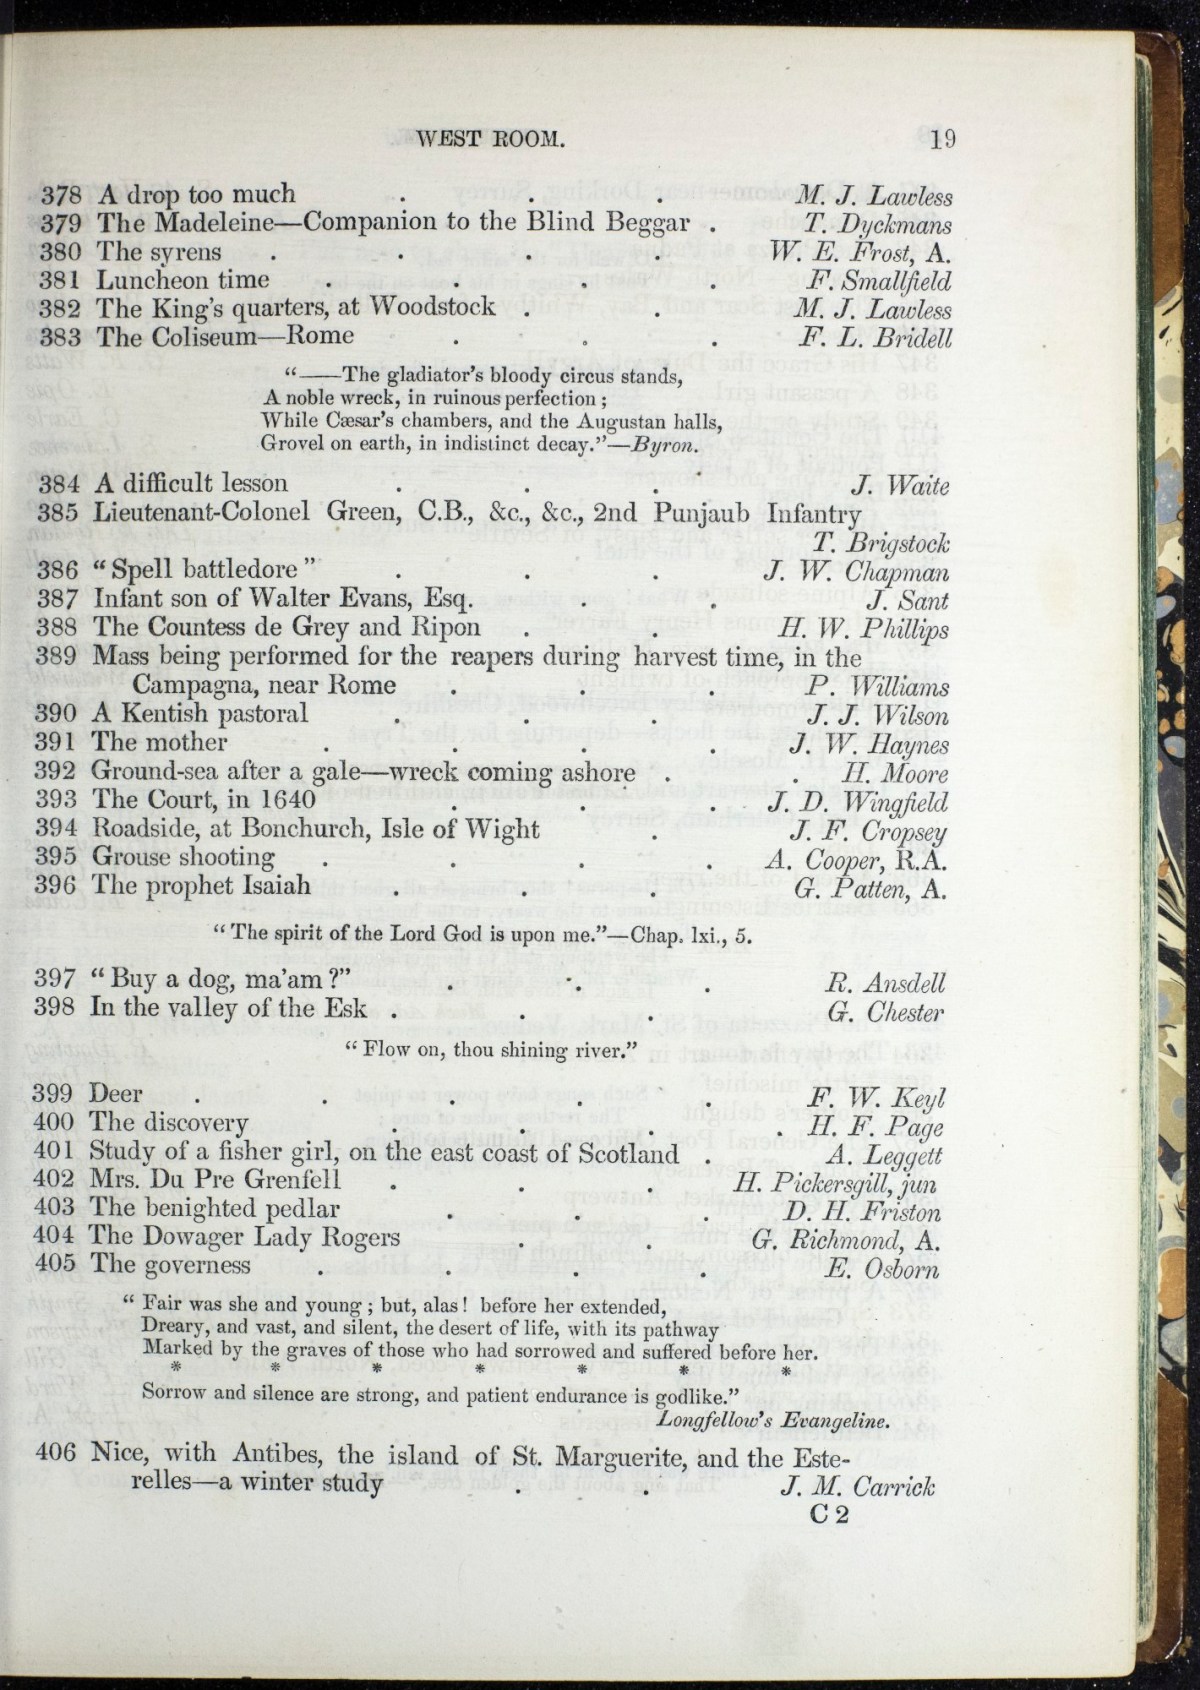 WEST ROOM. 19
378 A drop too much . . . M. J. Lawless
379 The Madeleine—Companion to the Blind Beggar . T. Dyckmans
380 The syrens . . . . W. E. Frost, A.
381 Luncheon time . . . . F. Smallfield
382 The King's quarters, at Woodstock . . M. J. Lawless
383 The Coliseum—Rome . . . F. L. Bridell
“——The gladiator's bloody circus stands,
A noble wreck, in ruinous perfection ;
While Cæsar's chambers, and the Augustan halls,
Grovel on earth, in indistinct decay.”—Byron.
384 A difficult lesson . . . J. Waite
385 Lieutenant-Colonel Green, C.B., &c., &c., 2nd Punjaub Infantry
T. Brigstock
386 “ Spell battledore ” . . . J. W. Chapman
387 Infant son of Walter Evans, Esq. . . J. Sant
388 The Countess de Grey and Ripon . . H. W. Phillips
389 Mass being performed for the reapers during harvest time, in the
Campagna, near Rome . . . P. Williams
390 A Kentish pastoral . . . J. J. Wilson
391 The mother . . . . J. W. Haynes
392 Ground-sea after a gale—wreck coming ashore . . H. Moore
393 The Court, in 1640 . . . J. D. Wingfield
394 Roadside, at Bonchurch, Isle of Wight . J. F. Cropsey
395 Grouse shooting . . . . A. Cooper, R.A.
396 The prophet Isaiah . . . G. Patten, A.
“ The spirit of the Lord God is upon me.”—Chap. lxi., 5.
397 “ Buy a dog, ma'am ?” . . . R. Ansdell
398 In the valley of the Esk . . . G. Chester
“ Flow on, thou shining river.”
399 Deer . . . . . F. W. Keyl
400 The discovery . . . . H. F. Page
401 Study of a fisher girl, on the east coast of Scotland . A. Leggett
402 Mrs. Du Pre Grenfell . . . H. Pickersgill, jun
403 The benighted pedlar . . . D. H. Friston
404 The Dowager Lady Rogers . . G. Richmond, A.
405 The governess . . . . E. Osborn
“ Fair was she and young ; but, alas ! before her extended,
Dreary, and vast, and silent, the desert of life, with its pathway
Marked by the graves of those who had sorrowed and suffered before her.
* * * * * * *
Sorrow and silence are strong, and patient endurance is godlike.”
Longfellow's Evangeline.
406 Nice, with Antibes, the island of St. Marguerite, and the Este-
relles—a winter study . . J. M. Carrick
C 2